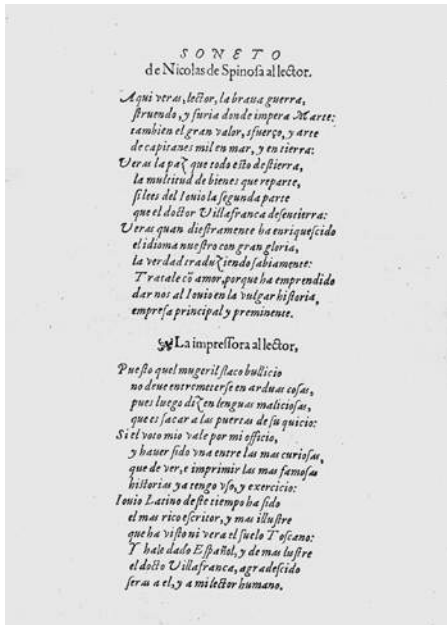 SONETO
de Nicolas de Spinoſa al lector.
Aqui veras, lector, la braua guerra,
ſtruendo, y furia donde impera Marte:
tambien el gran valor, sfuerço, y arte
de capitanes mil en mar, y en tierra:
Veras la paz que todo eſto deſtierra,
la multitud de bienes que reparte,
ſi lees del Iouio la ſegunda parte
que el doctor Villafranca deſentierra:
Veras quan dieſtramente ha enriqueſcido
el idioma nueſtro con gran gloria,
la verdad traduziendo ſabiamente:
Tratale cõ amor, porque ha emprendido
dar nos al Iouio en la vulgar hiſtoria,
empreſa principal y preminente.
La impreſſora al lector,
Pueſto quel mugeril flaco bullicio
no deue entremeterſe en arduas coſas,
pues luego dizen lenguas malicioſas,
que es ſacar a las puertas de ſu quicio:
Si el voto mio vale por mi officio,
y hauer ſido vna entre las mas curioſas,
que de ver, e imprimir las mas famoſas
hiſtorias ya tengo vſo, y exercicio:
Iouio Latino deſte tiempo ha ſido
el mas rico eſcritor, y mas illuſtre
que ha viſto ni vera el ſuelo Toſcano:
Y hale dado Eſpañol, y de mas luſtre
el docto Villafranca, agradeſcido
ſeras a el, y a mi lector humano.